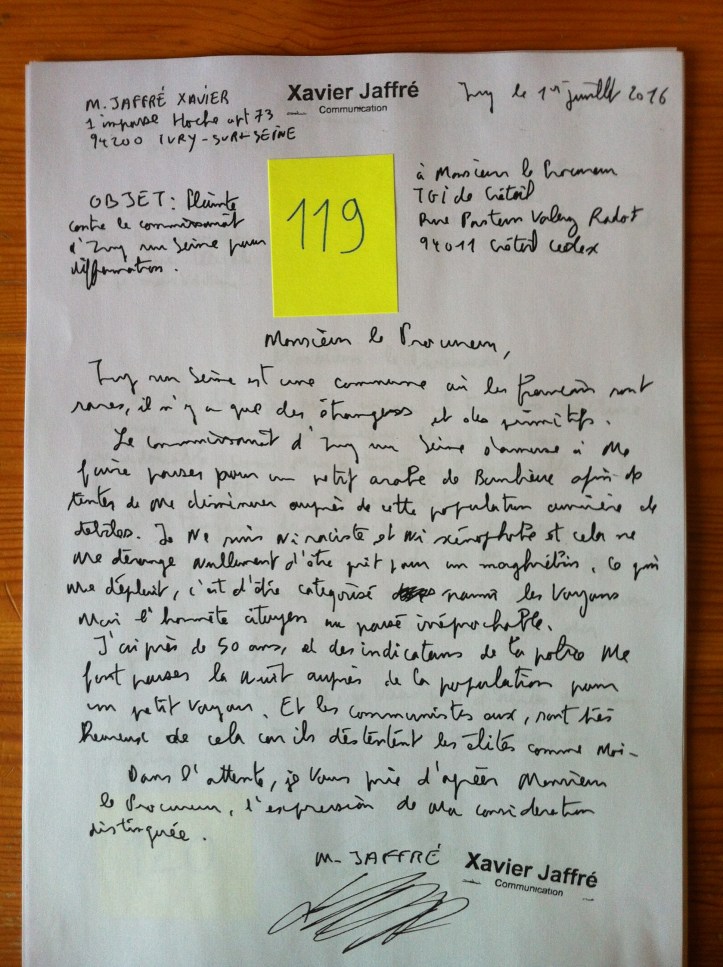 Xavier Jaffré
Communication
M. JAFFRÉ XAVIER
1 impasse Hoche apt 73
94200 IVRY-SUR-SEINE
Ivry le 1er juillet 2016
à Monsieur le Procureur
TGI de Créteil
Rue Pasteur Valery Radot
94011 Créteil cedex
OBJET: Plainte
contre le commissariat
d'Ivry sur Seine pour
diffamation.
119
Monsieur le Procureur,
Ivry sur Seine est une commune où les français sont
rares, il n'y a que des étrangers et des primitifs.
Le commissariat d'Ivry sur Seine s'amuse à me
faire passer pour un petit arabe de Banlieue afin de
tenter de me diminuer auprès de cette population de
débiles. Je ne suis ni raciste et ni xénophobe et cela ne
me dérange nullement d'être pris pour un maghrébin. Ce qui
me déplait, c'est d'être catégorisé parmi les voyous
moi l'honnête citoyen au passé irréprochable.
J'ai près de 50 ans, et des indicateurs de la police me
font passer la nuit auprès de la population pour
un petit voyou. Et les communistes eux, sont très
heureux de cela car ils détestent les élites comme moi-
Dans l'attente, je vous prie d'agréer Monsieur
le Procureur, l'expression de ma considération
distinguée.
M. JAFFRÉ
Xavier Jaffré
Communication